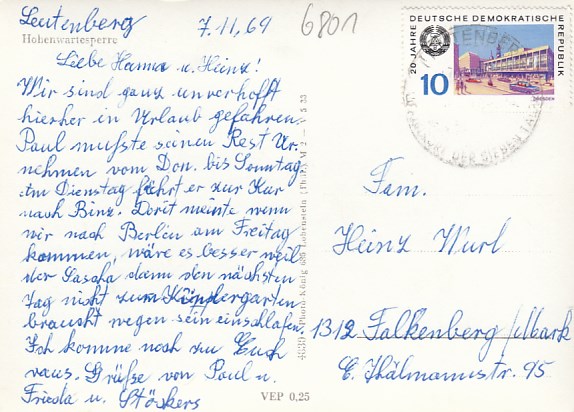 Leutenberg
7.11.69
6801
Hohenwartesperre
Liebe Hanna u. Heinz!
Wir sind ganz unverhofft
hierher in Urlaub gefahren.
Paul mußte seinen Rest Ur-
nehmen vom Don. bis Sonntag.
Am Dienstag fährt er zur Kur
nach Binz. Dorit meinte wenn
wir nach Berlin am Freitag
kommen, wäre es besser weil
der Sascha dann den nächsten
Tag nicht zum Kindergarten
brauscht wegen sein einschlafen.
Ich komme noch zu Euch
raus. Grüße von Paul u.
Frieda u. Stöckers
VEP 0,25
4639 Photo-König 685 Lobenstein (Thür.) M 2
20 JAHRE DEUTSCHE DEMOKRATISCHE REPUBLIK
10
DRESDEN
DER SIEBEN TÄLER
Fam.
Heinz Wurl
1312 Falkenberg/Mark
E. Thälmannstr. 95